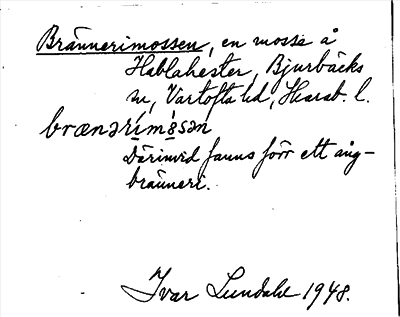 Brännerimossen, en mosse å
Hablahester, Bjurbäcks
sn, Vartofta hd, Skarab. l.
brænərimåsən
Därinvid fanns förr ett ång-
bränneri.
Ivar Lundahl 1948.